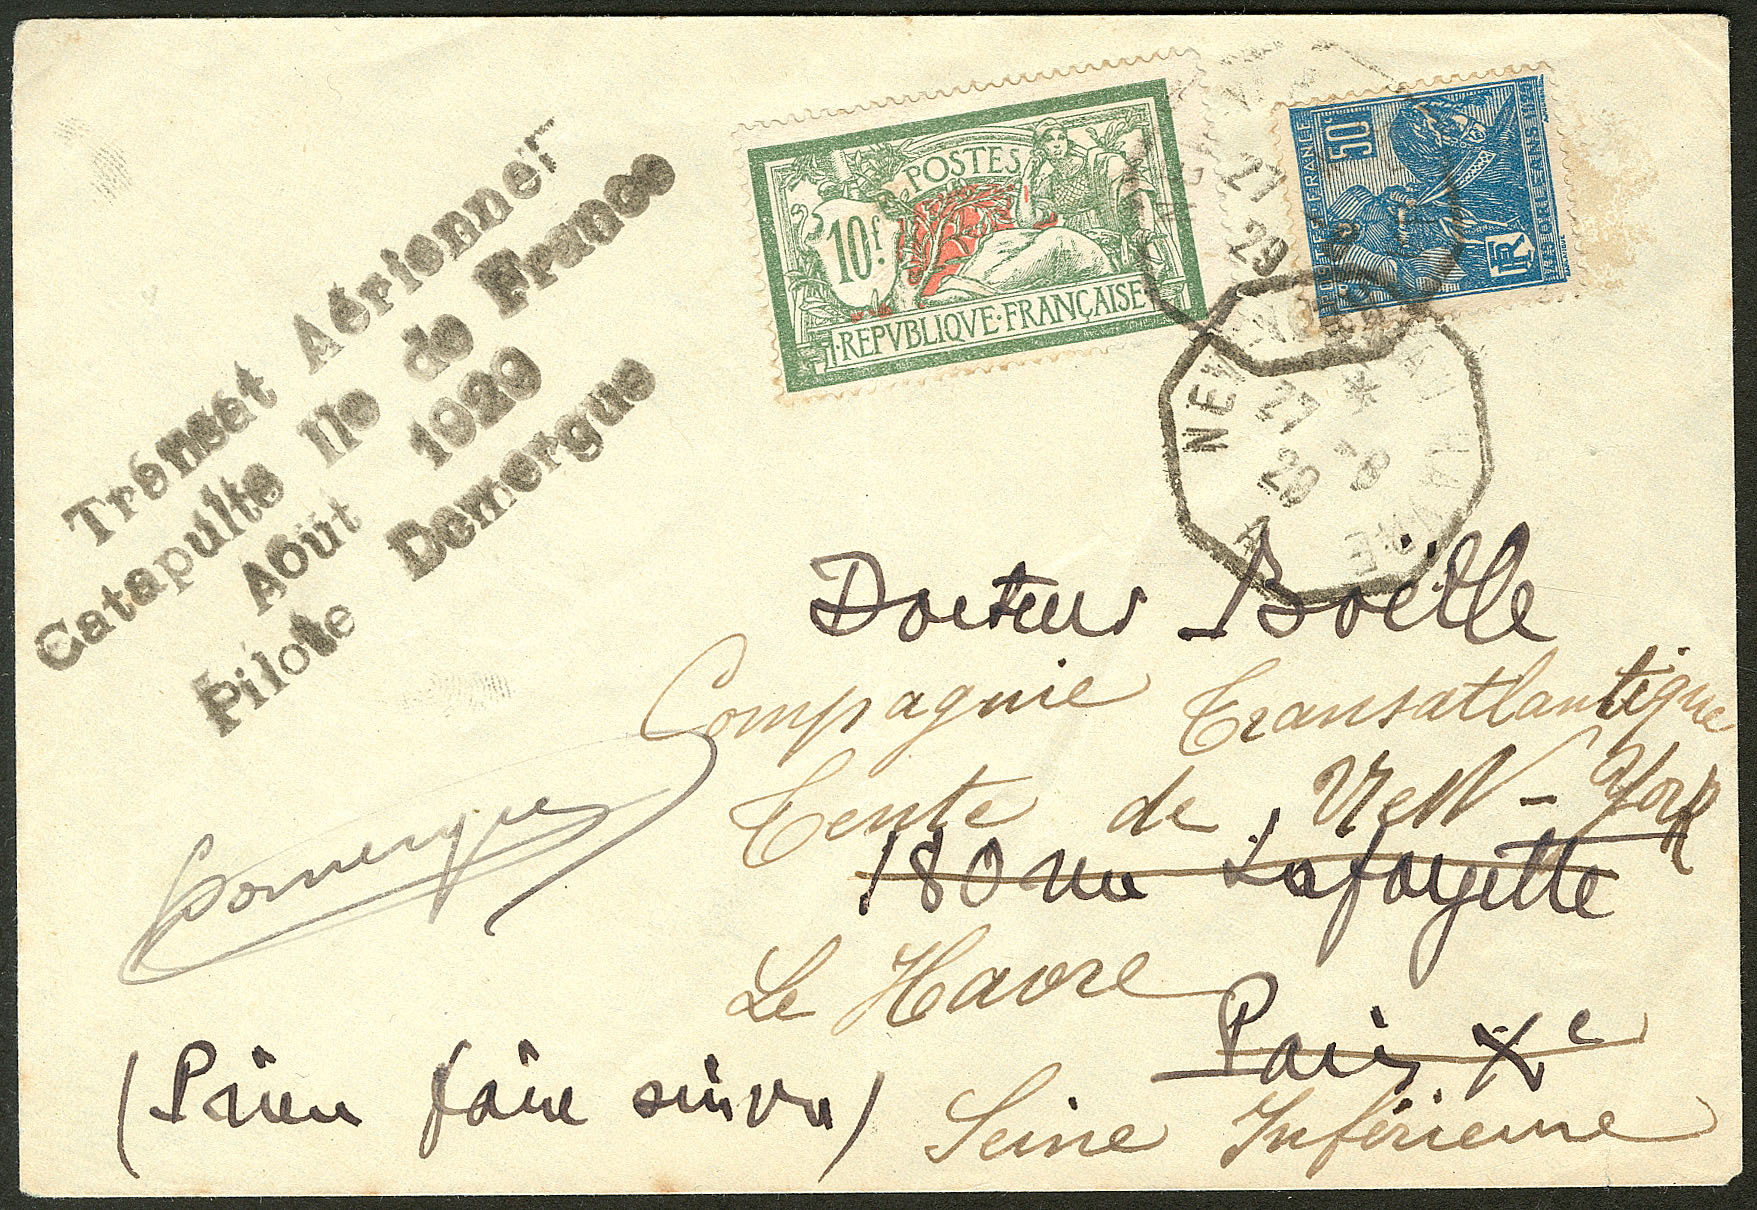 Transat Aérienner
Catapulte Ile de France
Août 1929
Pilote Demergue
POSTES
10f.
REPVBLIQVE·FRANÇAISE
50c
POSTES FRANCE
RF
NEW
27
29
NEW
27 -8
29
HAVRE
Docteur Boëlle
Compagnie Transatlantique
Tente de New-York
180 rue Lafayette
Le Havre
Paris Xe
Seine Inférieure
(Prière faire suivre)
Domergue